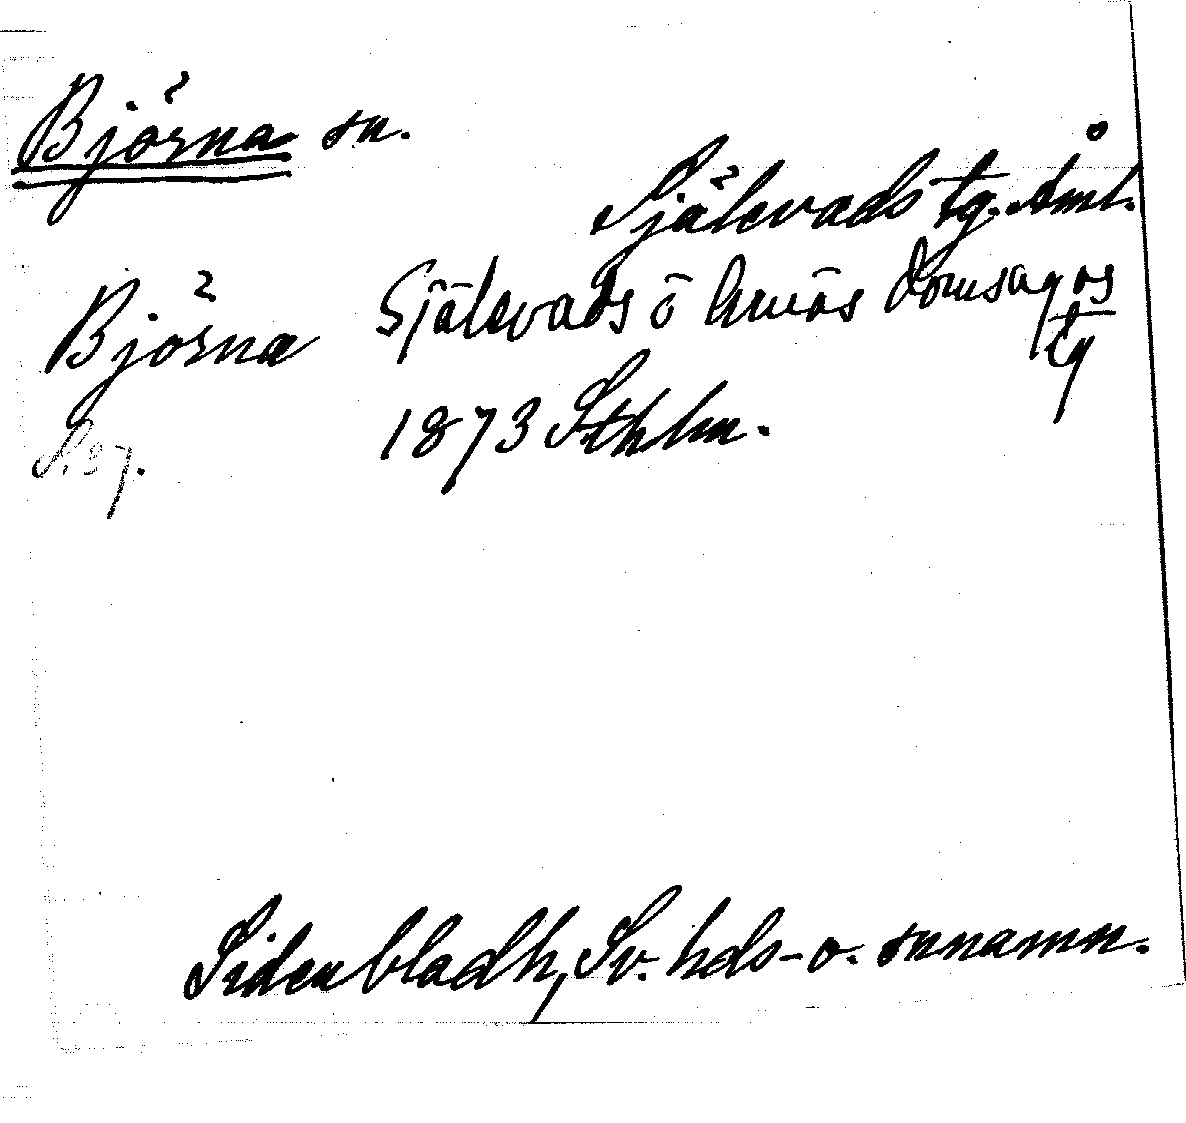 Björna sn.
Själevads tg. Åml.
Björna Själevads o Arnäs domsagas tg
S. 87. 1873 Sthlm.
Sidenbladh, Sv. hds- o. snnamn.